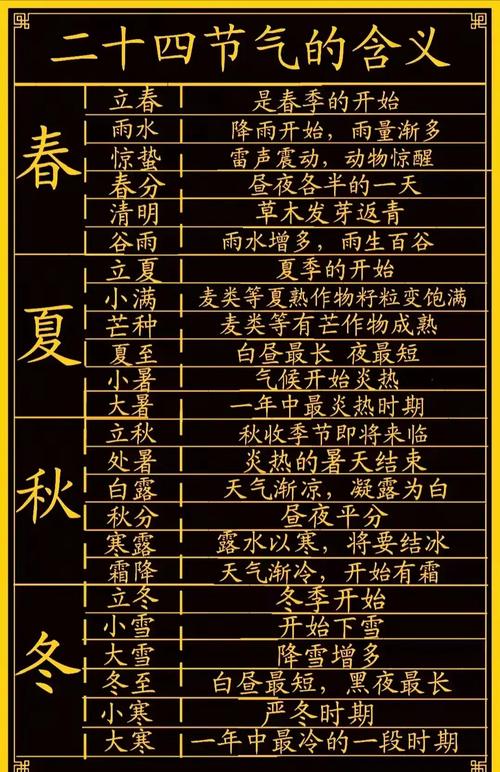 二十四节气的含义
春
立春 是春季的开始
雨水 降雨开始，雨量渐多
惊蛰 雷声震动，动物惊醒
春分 昼夜各半的一天
清明 草木发芽返青
谷雨 雨水增多，雨生百谷
夏
立夏 夏季的开始
小满 麦类等夏熟作物籽粒变饱满
芒种 麦类等有芒作物成熟
夏至 白昼最长 夜最短
小暑 气候开始炎热
大暑 一年中最炎热时期
秋
立秋 秋收季节即将来临
处暑 炎热的暑天结束
白露 天气渐凉，凝露为白
秋分 昼夜平分
寒露 露水以寒，将要结冰
霜降 天气渐冷，开始有霜
冬
立冬 冬季开始
小雪 开始下雪
大雪 降雪增多
冬至 白昼最短，黑夜最长
小寒 严冬时期
大寒 一年中最冷的一段时期